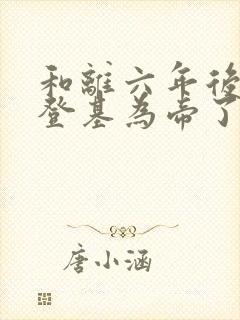 和離六年後
登基為帝了
唐小涵